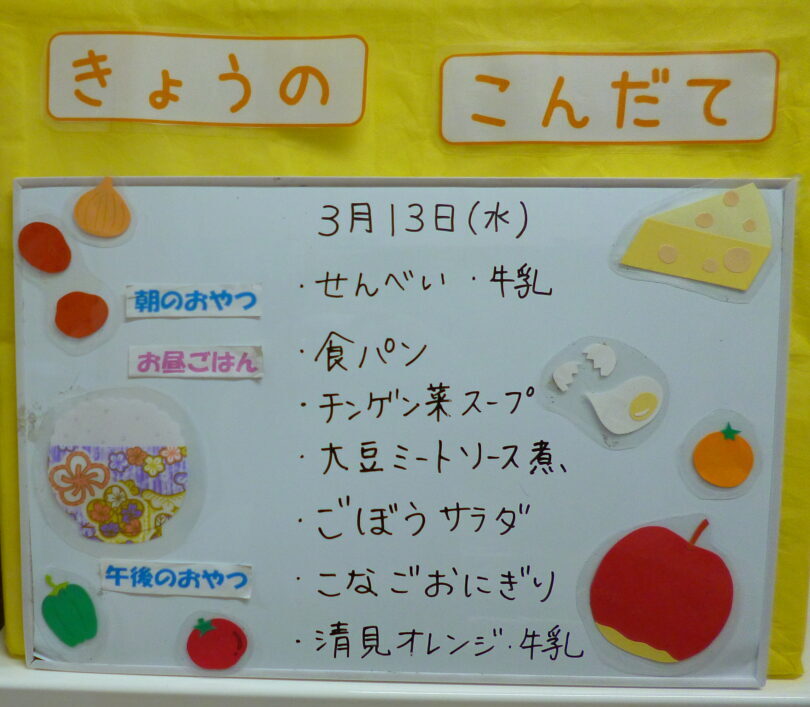 きょうの こんだて
3月13日(水)
朝のおやつ ・せんべい ・牛乳
お昼ごはん ・食パン
・チンゲン菜スープ
・大豆ミートソース煮
・ごぼうサラダ
午後のおやつ ・こなごおにぎり
・清見オレンジ・牛乳